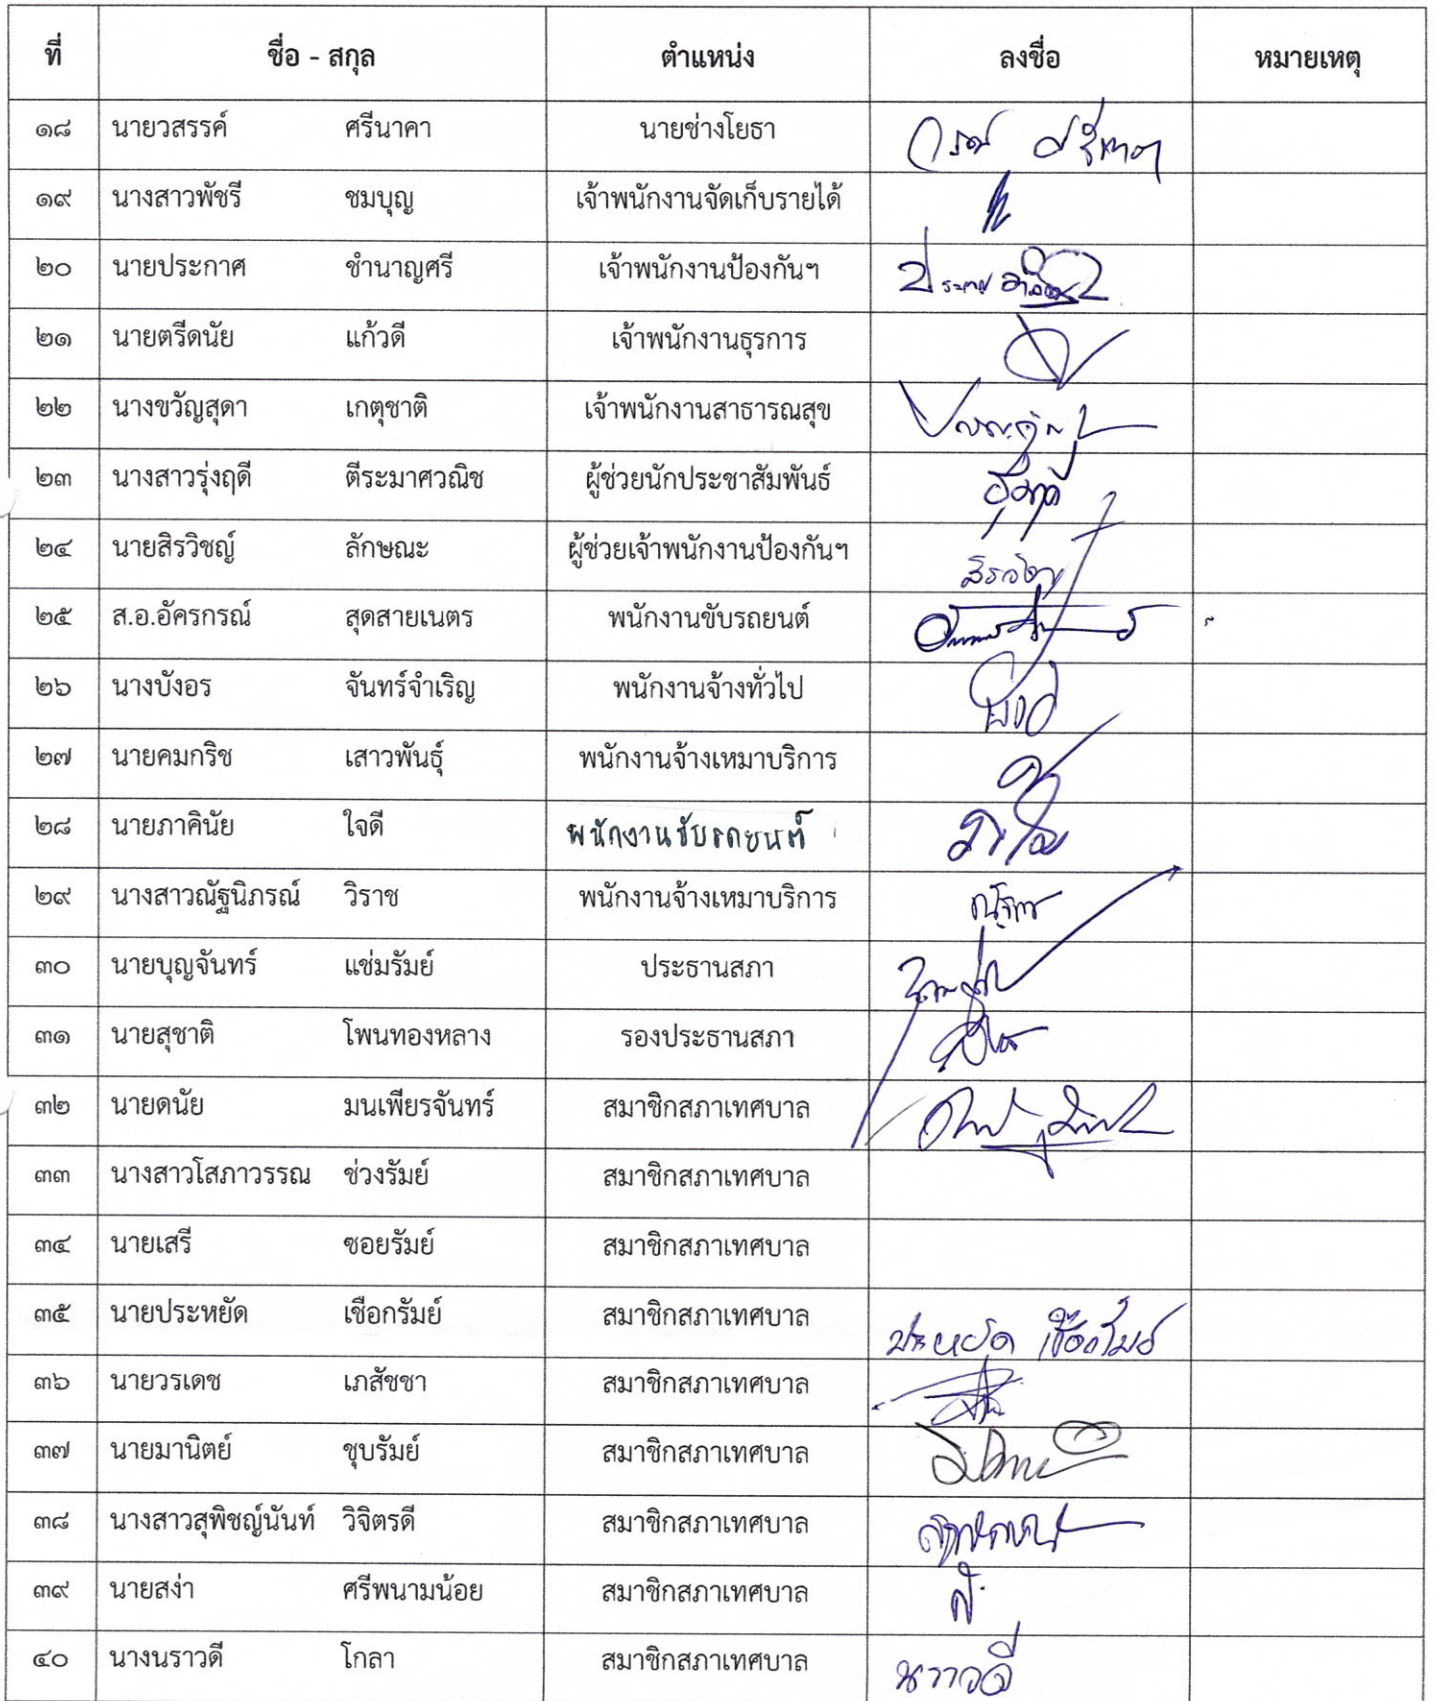 ที่ ชื่อ - สกุล ตำแหน่ง ลงชื่อ หมายเหตุ
๑๘ นายวสรรค์ ศรีนาคา นายช่างโยธา
๑๙ นางสาวพัชรี ชมบุญ เจ้าพนักงานจัดเก็บรายได้
๒๐ นายประกาศ ชำนาญศรี เจ้าพนักงานป้องกันฯ
๒๑ นายตรีดนัย แก้วดี เจ้าพนักงานธุรการ
๒๒ นางขวัญสุดา เกตุชาติ เจ้าพนักงานสาธารณสุข
๒๓ นางสาวรุ่งฤดี ตีระมาศวณิช ผู้ช่วยนักประชาสัมพันธ์
๒๔ นายสิรวิชญ์ ลักษณะ ผู้ช่วยเจ้าพนักงานป้องกันฯ
๒๕ ส.อ.อัครกรณ์ สุดสายเนตร พนักงานขับรถยนต์
๒๖ นางบังอร จันทร์จำเริญ พนักงานจ้างทั่วไป
๒๗ นายคมกริช เสาวพันธุ์ พนักงานจ้างเหมาบริการ
๒๘ นายภาคินัย ใจดี พนักงานขับรถยนต์
๒๙ นางสาวณัฐนิภรณ์ วิราช พนักงานจ้างเหมาบริการ
๓๐ นายบุญจันทร์ แช่มรัมย์ ประธานสภา
๓๑ นายสุชาติ โพนทองหลาง รองประธานสภา
๓๒ นายดนัย มนเพียรจันทร์ สมาชิกสภาเทศบาล
๓๓ นางสาวโสภาวรรณ ช่วงรัมย์ สมาชิกสภาเทศบาล
๓๔ นายเสรี ซอยรัมย์ สมาชิกสภาเทศบาล
๓๕ นายประหยัด เชือกรัมย์ สมาชิกสภาเทศบาล ประหยัด เชือกรัมย์
๓๖ นายวรเดช เภสัชชา สมาชิกสภาเทศบาล
๓๗ นายมานิตย์ ชุบรัมย์ สมาชิกสภาเทศบาล
๓๘ นางสาวสุพิชญ์นันท์ วิจิตรดี สมาชิกสภาเทศบาล
๓๙ นายสง่า ศรีพนามน้อย สมาชิกสภาเทศบาล
๔๐ นางนราวดี โกลา สมาชิกสภาเทศบาล นราวดี